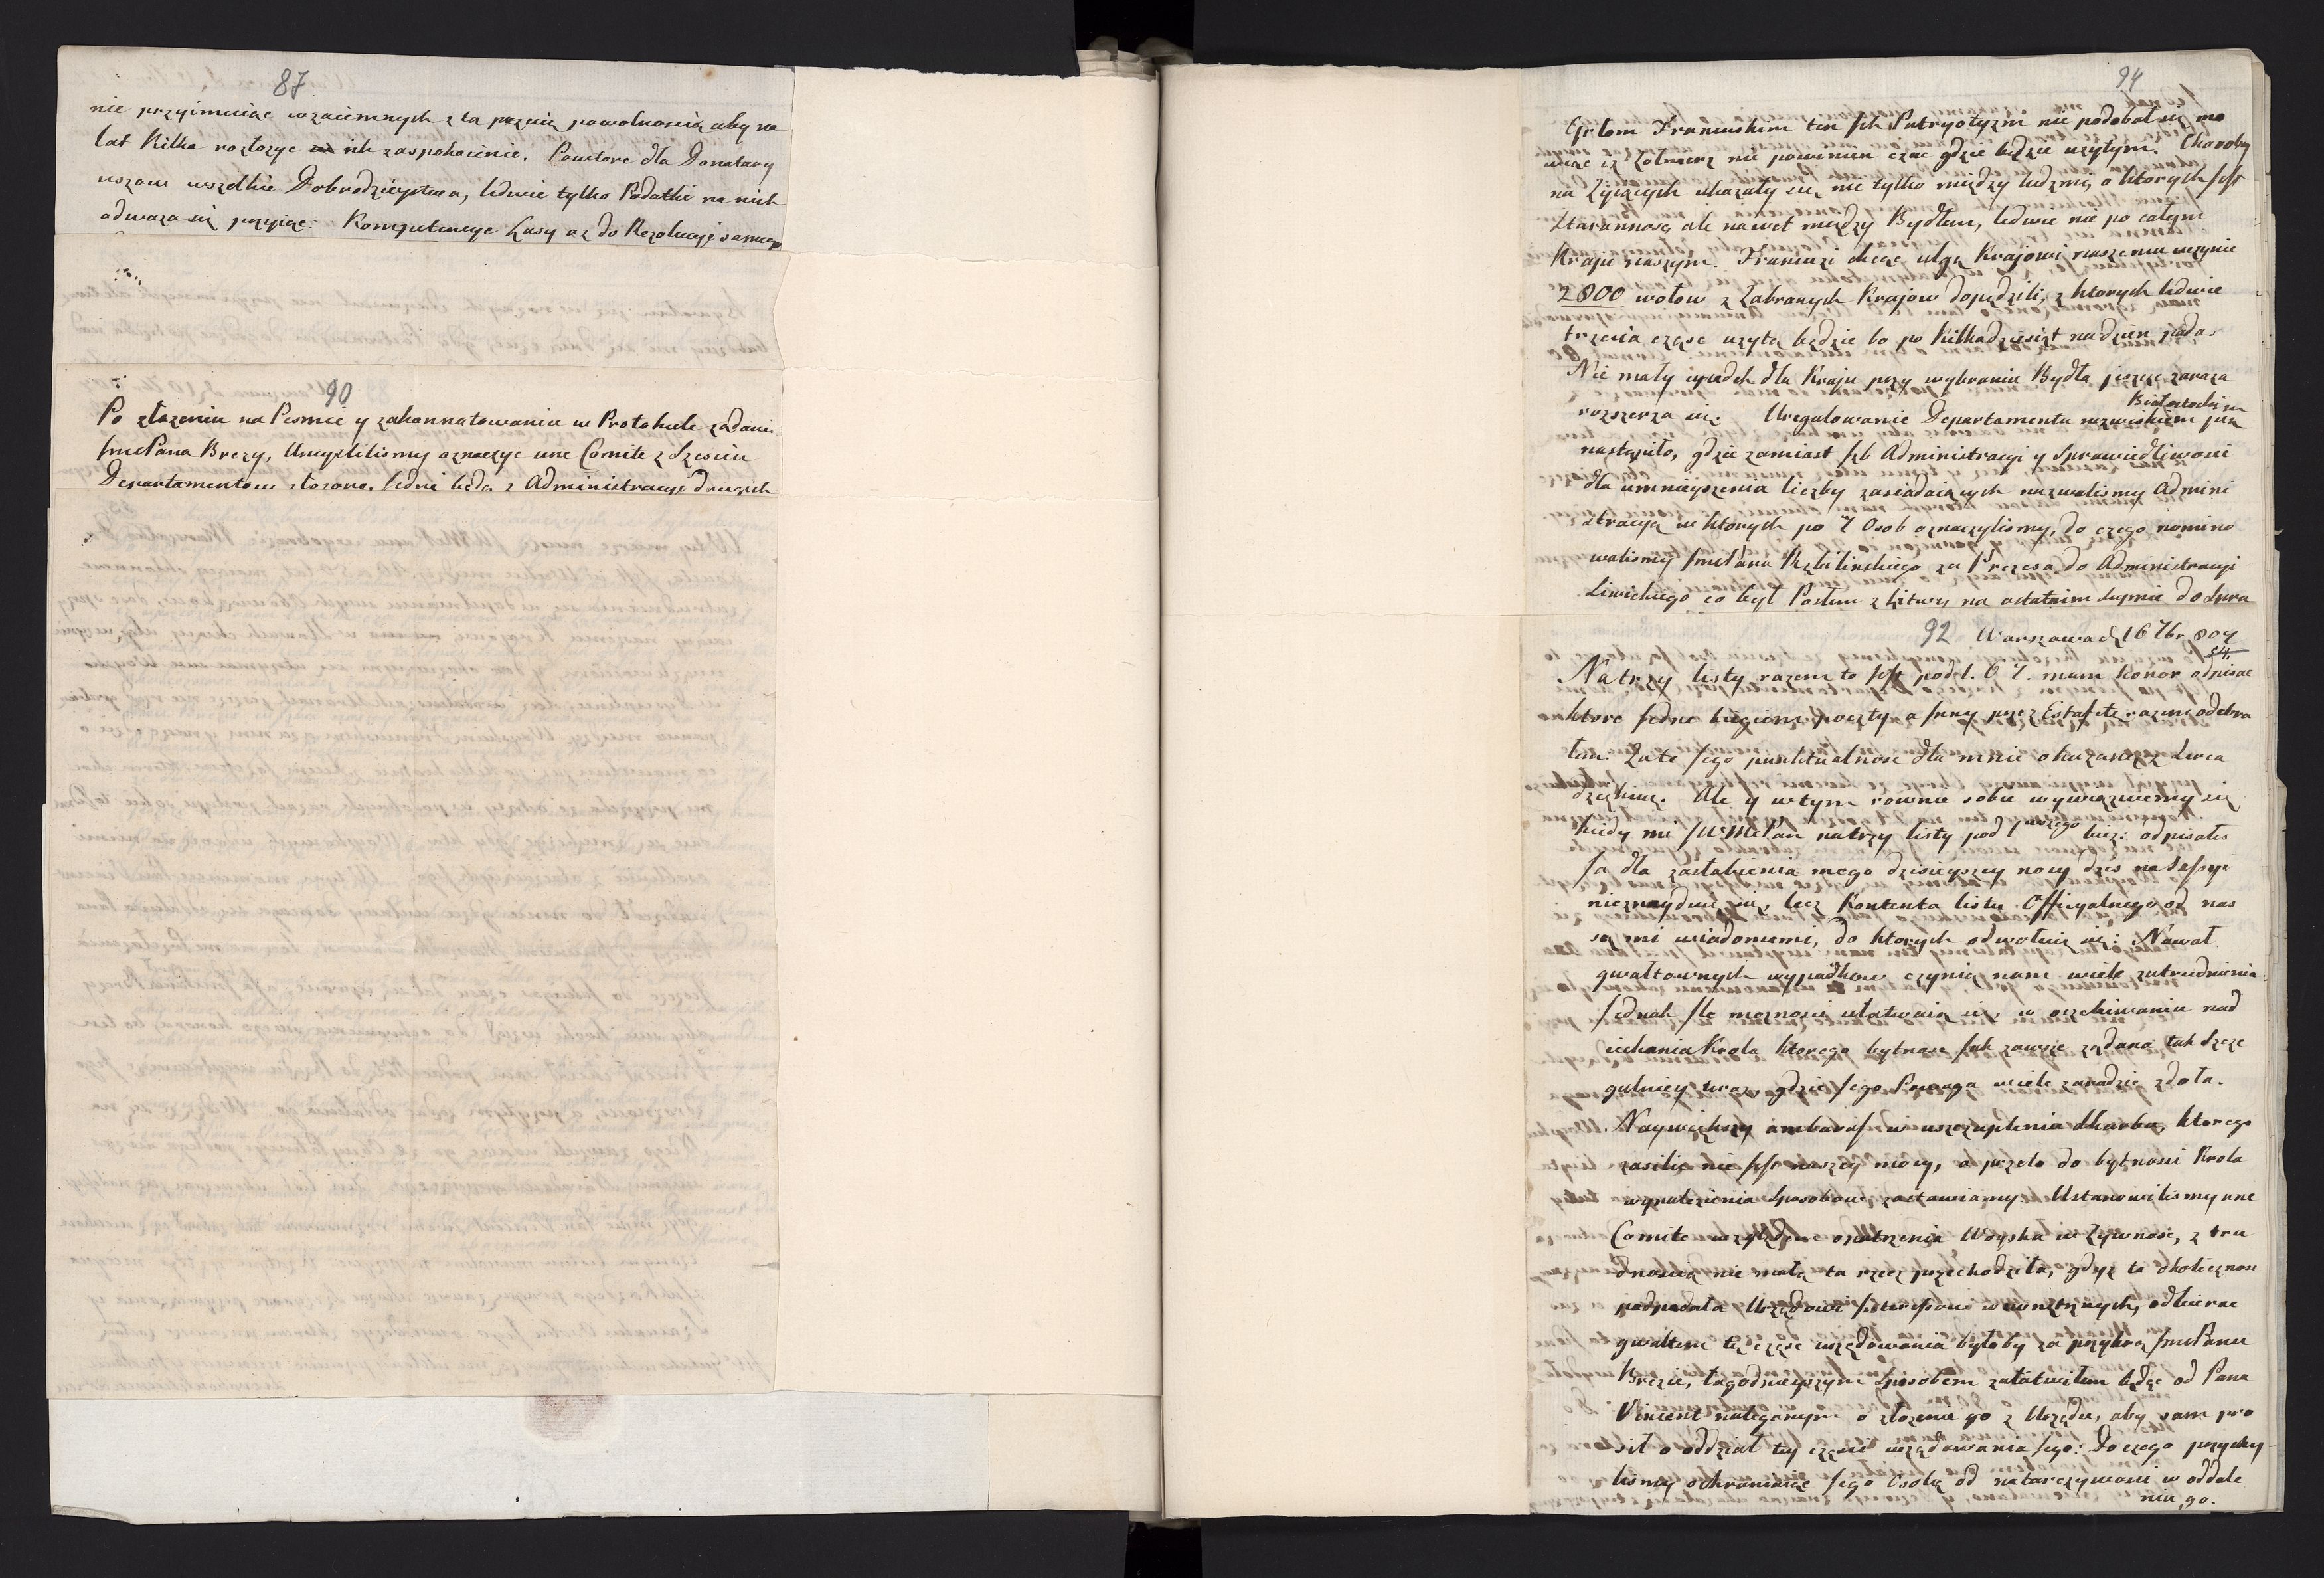 87
nie przyimuiąc wzaiemnych z tą powolnością aby na
lat Kilka rozłozyc ich zaspokoienie. Powtore dla Donatary
uszow wszelkie Dobrodzieystwa, ledwie tylko Podatki na nich
odwaza się przyiąc. Kompetencye Lasy az do Rezolucyi samego
90
Po złozeniu na Pismie y zakonnotowaniu w Protokule żądania
JmcPana Brezy, Umyslilismy oznaczyc une Comite z Szesciu
Departamentow złozone. Jedni będą z Administracyi drugich
94
Grlom Francuskim ten Ich Patryotyzm nie podobał się mo
wiąc iz Zołnierz nie powinien czuc gdzie będzie uzytym. Choroby
na Zyiących ukazały się nie tylko między ludzmi, o ktorych jest
Staranność ale nawet między Bydłem, ledwie nie po całym
Kraju naszym. Francuzi chcąc ulgę Krajowi naszemu uczynic
2800 wołow z Zabranych Krajow dopędzili, z ktorych ledwie
trzecia częsc uzytą będzie bo po Kilkadziesiąt na dzien pada.
Nie mały upadek dla Kraju przy wybraniu Bydła jeszcze zaraza
rozszerza się. Uregulowanie Departamentu nazwiskiem Białostockim juz
nastąpiło, gdzie zamiast Izb Administracyi y Sprawiedliwosci
dla umnieyszenia liczby zasiadaiących nazwalismy Admini
stracyą w ktorych po 7 Osob oznaczylismy, do czego nomino
walismy JmcPana za Prezesa do Administracyi
Liwickiego co był Posłem z Litwy na ostatnim Seymie do Spra
92 Warszawa d. 16 7br. 807
54.
Na trzy listy razem to jest pod l. 6 7. mam honor odpisac
ktore jedne biegiem poczty a Inny przez Estafetę razem odebra
łem. Za te Jego punktualnosc dla mnie okazaną z Serca
dziękuię. Ale y w tym rownie sobie wywięzuiemy się
kiedy mi JWMcPan na trzy listy pod 1 wszego biez: odpisałes
Ja dla zasłabienia mego dzisieyszey nocy dzis na Sessyi
nieznayduię się, lecz Kontenta listu Officyalnego od nas
są mi wiadomemi, do ktorych odwołuię się: Nawał
gwałtownych wypadkow czynią nam wiele zatrudnienia
Jednak Ile moznosci ułatwaią się, w oczekiwaniu nad
iechania Krola ktorego bytnosc jak zawsze ządana tak Szcze
gulniey teraz, gdzie Jego Powaga wiele zaradzic zdoła.
Naywiększy ambaras w uszczuplenia Skarbu, ktorego
zasilic nie jest naszey mocy, a przeto do bytnosci Krola
wynalezienia Sposobow zostawiamy. Ustanowilismy une
Comite względem opatrzenia Woyska w Zywnosc, z tru
dnoscią nie małą ta rzecz przechodziła, gdyz ta okolicznosc
podpadała Urzędowi Interessow wewnętrznych, odbierac
gwałtem tę częsc urzędowania byłoby za przykrą JmcPanu
Brezie, łagodnieyszym Sposobem załatwiłem będąc od Pana
Vincent naleganym o złozenie go z Urzędu, aby sam pro
sił o oddział tey częsci urzędowania Jego: Do czego przychy
lismy ochraniaiąc Jego Osobę od natarczywosci w oddale
niu go.